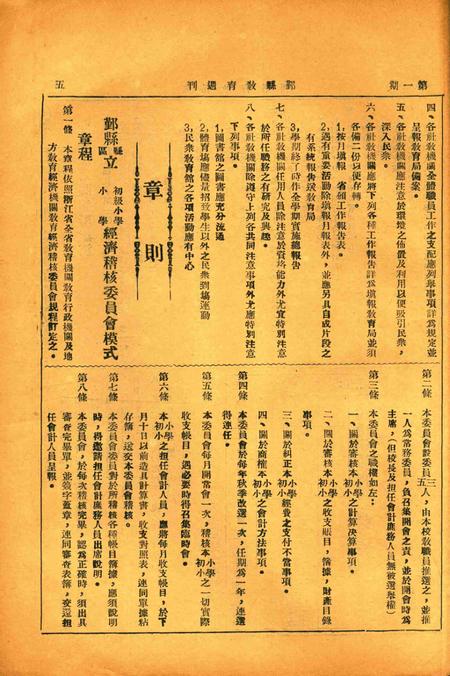 第一期
鄞縣敎育週刊
五
四、各社敎機關全體職員工作之支配應列舉事項詳爲規定並
呈報敎育局備案。
五、各社敎機關應注意於環境之佈置及利用以便吸引民衆，
深入民衆。
六、各社敎機關應將下列各種工作報告詳爲填報敎育局並須
各備二份以便存轉。
1,按月填報 省頒工作報告表。
2,遇有重要活動除填報月報表外，並應另具自成片段之
有系統報告送敎育局
3,學期終了時作全學期實施總報告
七、各社敎機關任用人員除注意於資格能力外尤宜特別注意
於所任職務之有研究及興趣。
八、各社敎機關除遵守上列各共同注意事項外尤應特別注意
下列事項。
1,圖書館之圖書應充分流通
2,體育塲應儘量招致學生以外之民衆到塲運動
3,民衆敎育館之各項活動應有中心
章則
鄞縣縣區立初級小學小學經濟稽核委員會模式
章程
第一條 本章程依照浙江省全省敎育機關敎育行政機關及地
方敎育經濟機關敎育經濟稽核委員會規程訂定之。
第二條 本委員會設委員三五人，由本校敎職員推選之，並推
一人爲常務委員，負召集開會之責，並於開會時爲
主席，（但校長及担任會計庶務人員無被選舉權）
第三條 本委員會之職權如左：
一、關於審核本小學初小之計算決算事項。
二、關於審核本小學初小之收支賬目，簿據，財產目錄
事項。
三、關於糾正本小學初小經費之支付不當事項。
四、關於商榷本小學初小之會計方法事項。
第四條 本委員會於每年秋季改選一次，任期爲一年，連選
得連任。
第五條 本委員會每月開常會一次，稽核本小學初小之一切實際
收支賬目，遇必要時得召集臨時會。
第六條 本小學初小之担任會計人員，應將每月收支賬目，於下
月十日以前造具計算書，收支對照表，連同單據粘
存簿，送交本委員會稽核。
第七條 本委員會委員對於所稽核各種帳目簿據，應須說明
時，得邀請担任會計庶務人員出席說明。
第八條 本委員會，於每次稽核完畢，認爲正確時，須出具
審查完畢單，並簽字蓋章，連同審查表簿，交還担
任會計人員呈報。